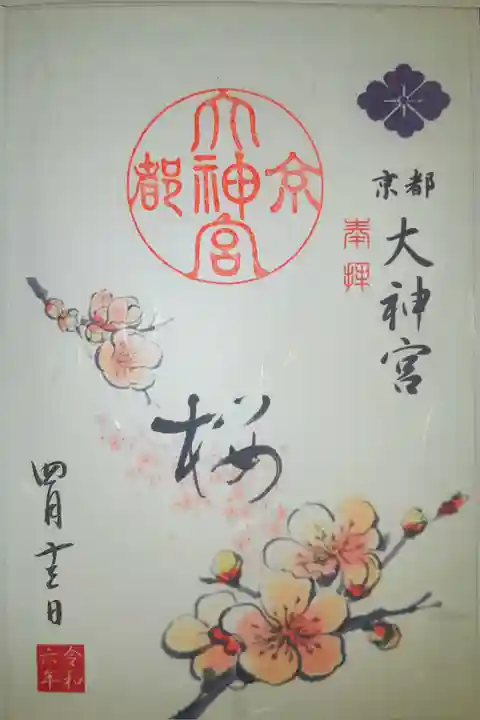 京都
大神宮
奉拝
京都
大神宮
桜
四月十三日
令和
六年